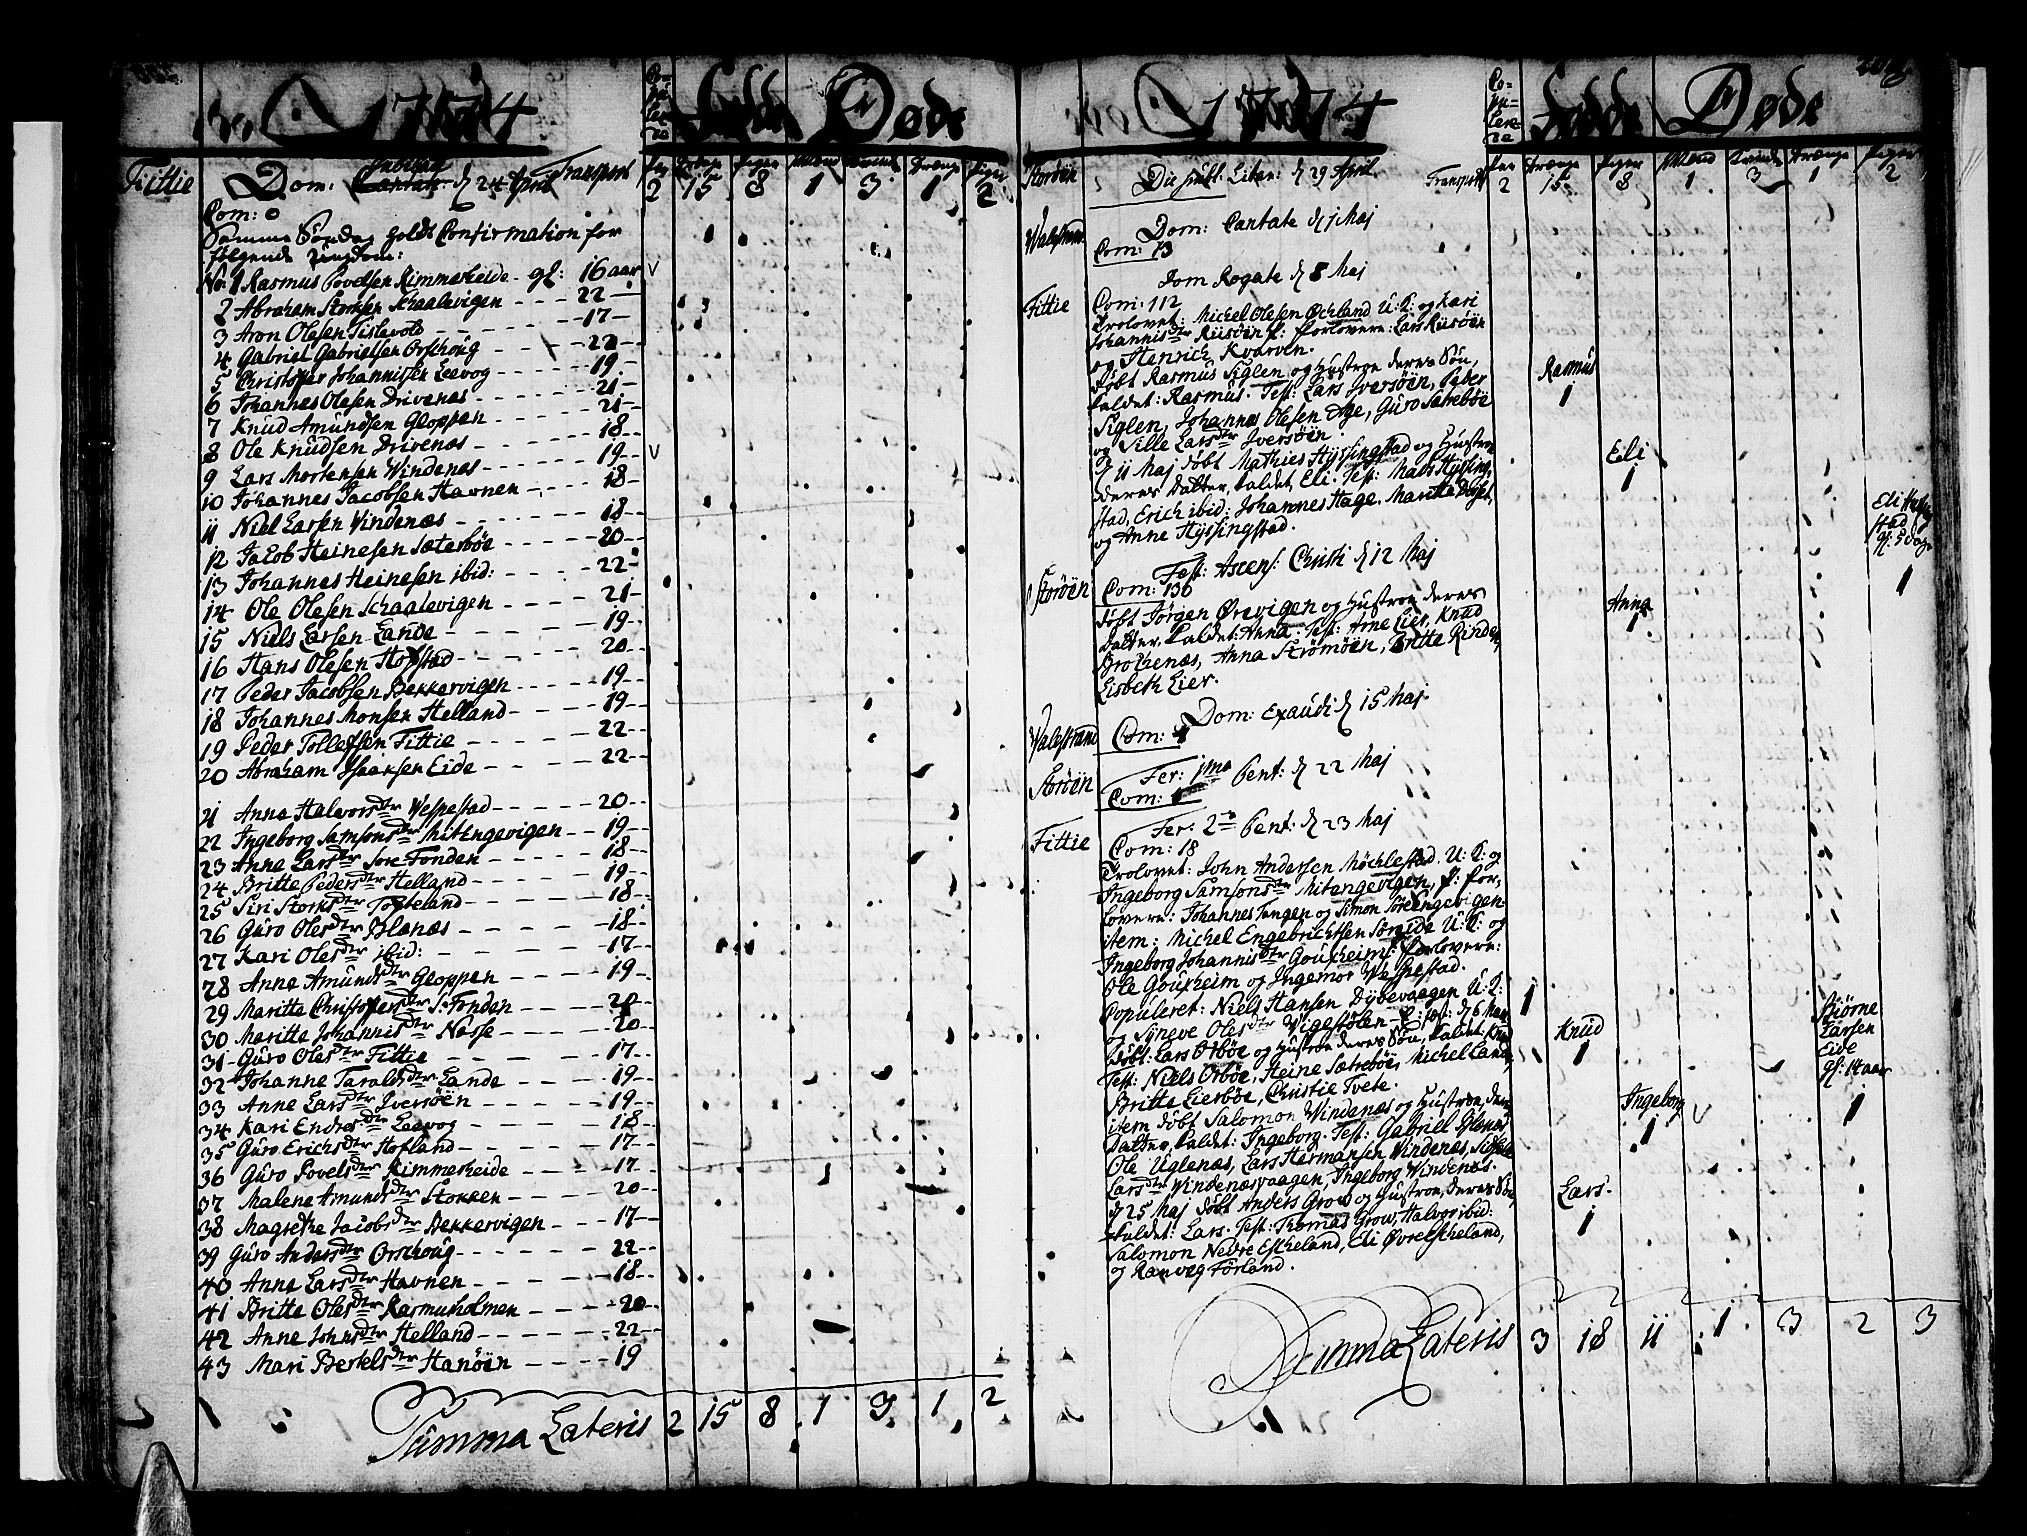 1774
Co-
pu-
lere-
de
Fødde
Døde
Fittie
Dom: Jubilate d 24 April
Transport
Par
Drenge
Piger
Mænd
Drenge
Piger
2 15 8 1 3 1 2
Com: 0
Samme Søndag holdt Confirmation for
følgende Ungdom:
No 1 Rasmus Povelsen Rimmereide - gl: 16 aar
2 Abraham Storksen Schaalevigen - - - 22 -
3 Aron Olesen Tislevold - - - 17 -
4 Gabriel Gabrielsen Orschoug - - - 22 -
5 Christopher Johannissen Leevog - - - 19 -
6 Johannes Olesen Drivenæs - - - 21 -
7 Knud Amundsen Gloppen - - - 21 -
8 Ole Knudsen Drivenæs - - - 18 -
9 Lars Mortensen Windenæs - - - 19 -
10 Johannes Jacobsen Havnen - - - 18 -
11 Niel Larsen Vindenæs - - - 18 -
12 Jacob Heinesen Sæterbøe - - - 20 -
13 Johannes Heinesen ibid: - - - 22 -
14 Ole Olesen Schaalevigen - - - 21 -
15 Niels Larsen Lande - - - 19 -
16 Hans Olesen Hopstad - - - 20
17 Peder Jacobsen Bekkervigen - - - 19 -
18 Johannes Monsen Helland - - - 19 -
19 Peder Tollefsen Fittie - - - 22 -
20 Abraham Isaaksen Eide - - - 22 -
21 Anna Halvorsdtr Vespestad - - - 20 -
22 Ingeborg Samsonsdtr Mitengevigen - - 19 -
23 Anne Larsdtr Sore Fonden - - - 18 -
24 Britte Pedersdtr Helland - - - 19 -
25 Siri Storksdtr Tofteland - - - 18 -
26 Guro Olesdtr Blænæs - - - 18 -
27 Kari Olesdtr ibid: - - - 17 -
28 Anne Amundsdtr Gloppen - - - 19 -
29 Maritte Christophersdtr S: Fonden - - - 20 -
30 Maritte Johannisdtr Nesse - - - 20
31 Guro Olesdtr Fittie - - - 17 -
32 Johanne Taraldsdtr Lande - - - 19 -
33 Anne Larsdtr Iversöen - - - 19 -
34 Kari Endresdtr Leevog - - - 18 -
35 Guro Erichsdtr Hofland - - - 17 -
36 Guro Povelsdtr Rimmereide - - - 17 -
37 Malene Amundsdtr Stokken - - - 20 -
38 Magrethe Jacobsdtr Bekkervigen - - 17 -
39 Guro Andersdtr Orschoug - - - 22 -
40 Anna Larsdtr Havnen - - - 18 -
41 Britte Olesdtr Rasmusholmen - - - 20
42 Anne Johnsdtr Helland - - - 22 -
43 Mari Bertelsdtr Hanöen - - - 19
Summa Lateris 2 15 8 1 3 1 2
1774
Co-
pu-
lere-
de
Fødde
Døde
Par
Drenge
Piger
Mænd
Qvinde
Drenge
Piger
Stordøen
Die publ: Litan: d 29 April. Transport 2 15 8 1 3 1 2
Walestrand
Dom: Cantate d 1 Maj
Com: 13
Dom Rogate d 8 Maj
Fittie
Com: 112
Trolovet: Michel Olesen Ochland U: K: og Kari
Johannisdtr Riisöen P: Forlovere: Lars Riisöen
og Henrich Kvarven.
Døbt Rasmus Siglen og Hustroe deres Søn,
kaldet: Rasmus. Test: Lars Iversöen, Peder
Siglen, Johannes Olesen Age, Guro Sætrebøe
og Sille Larsdtr Iversöen.
Rasmus
1
d 11 Maj døbt Mathies Hyssingstad og Hustroe
deres Datter, kaldet Eli. Test: Mads Hyssing,
stad, Erich ibid: Johannes Hage. Maritte
og Anne Hyssingstad.
Eli
1
Eli Hyssing
stad
gl: 5 Dage
1
Fest: Ascens: Christi d 12 Maj
Storöen
Com: 130
Døbt Jørgen Orevigen og Hustroe deres
Datter, kaldet: Anna: Test: Arne Lier, Knud
Grothenæs, Anna Strömöen, Britte Rinden,
Lisbeth Lier.
Anna
1
Dom: Exaudi d 15 Maj.
Valestrand
Com: 4
Fer: 1ma Pent: d 22 Maj
Storöen
Com:
Fer: 2da Pent: d 23 Maj
Fittie
Com: 18
Trolovet: John Andersen Möchlestad. U: K: og
Ingeborg Samsonsdtr Mitengevigen, P: For,
lovere: Johannes Tengen og Simon Sörengevigen.
item: Michel Engebrichtsen Söreide U: K: og
Ingeborg Johannisdtr Gouxheim P: Forlovere:
Ole Gouxheim og Ingemor Vespestad.
Populeret: Niels Hansen Dybevaagen U: K:
og Syneve Olesdtr Vigestölen P:
1
Døbt: Lars Orbøe og Hustroe deres Søn, kaldet: Knud
Test: Niels Orbøe, Heine Sætrebøe, Michel Lande,
Britte Lierbøe, Christie Tvete.
Knud
1
Biörne
Larsen
Eide
gl: 14 aar
1
item døbt Salomon Windenæs og Hustroe, deres
Datter, kaldet: Ingeborg. Test: Gabriel Blænæs
Ole Uglenæs, Lars Hermansen Vindenæs,
Larsdtr Windenæsvaagen, Ingeborg Vindenæs.
Ingeborg
1
d 25 Maj døbt Anders Grow og Hustroe, deres Søn,
kaldet: Lars. Test: Thomas Grow, Halvor ibid:
Salomon Nedre Escheland, Eli Øvreescheland,
og Ranveg Förland.
Lars.
1
Summa Lateris 3 18 11 1 3 2 3